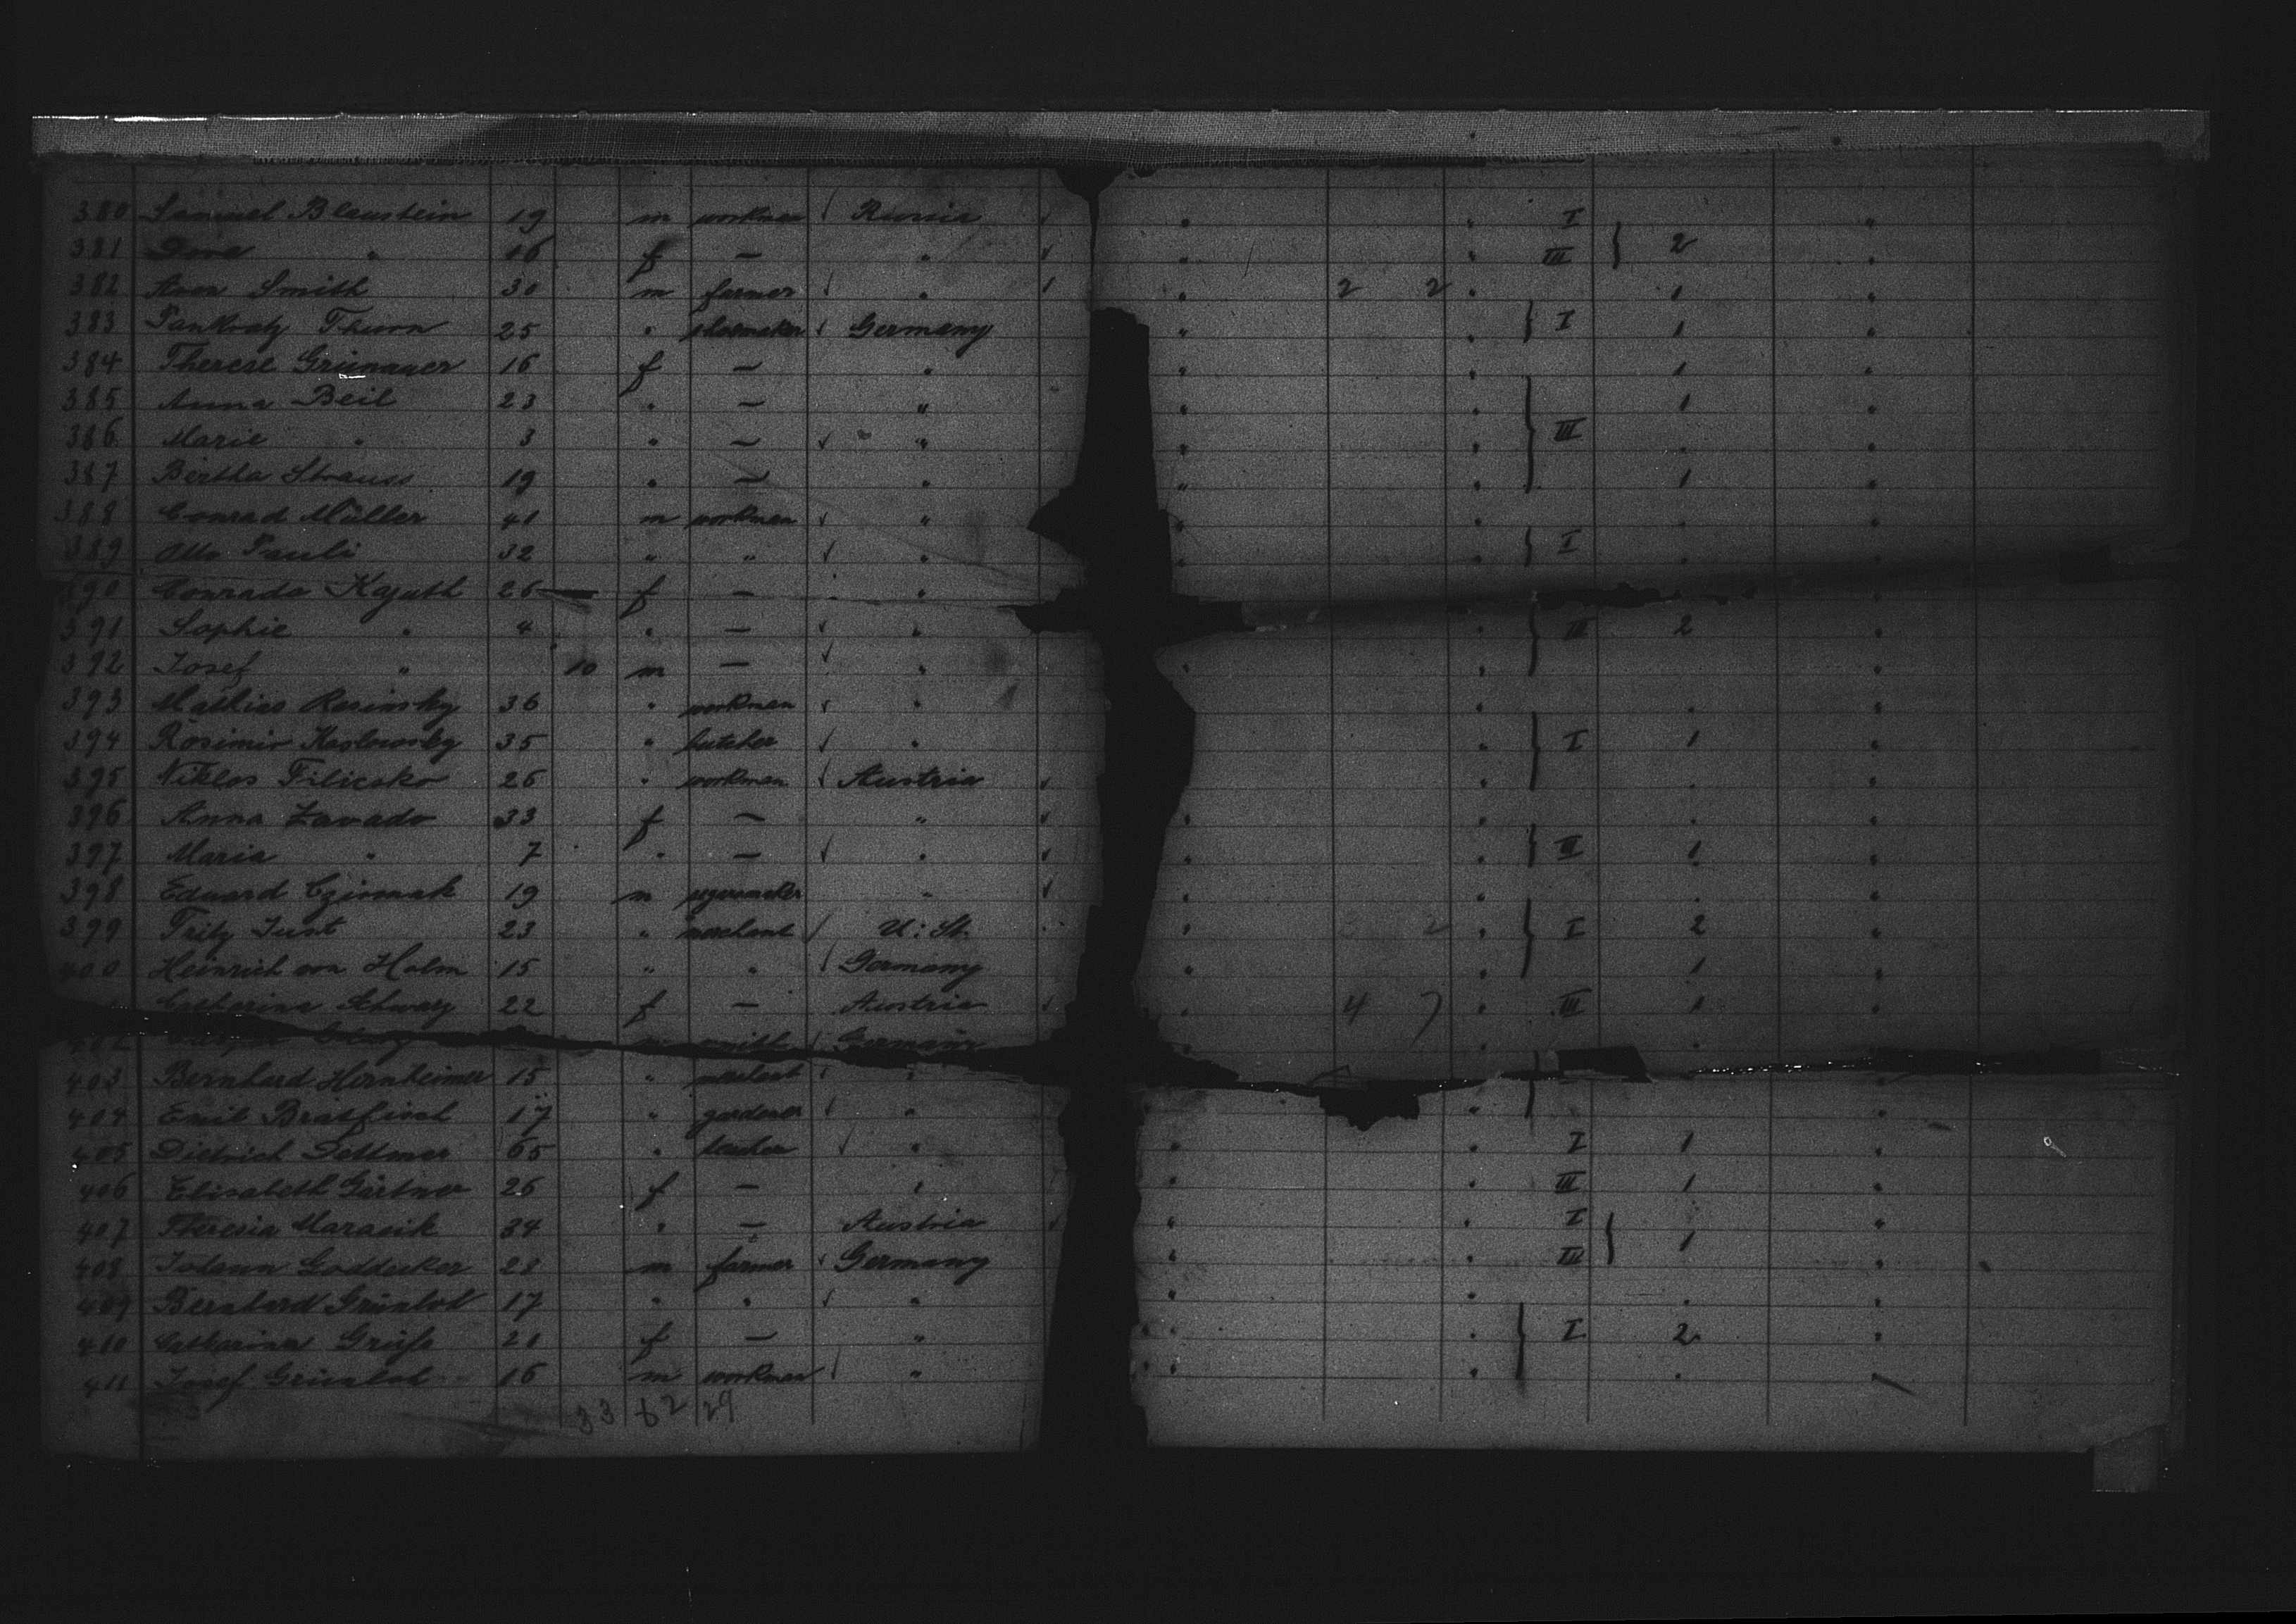 380 Samuel Blaustein 19 m workman √ Russia √ " " I
381 Dora " 16 f — " √ " " III } 2 "
382 Smith 30 m farmer √ " √ " 2 2 " 1 "
383 Pankratz Thurn 25 " shoemaker √ Germany " " } I 1 "
384 Therese Grünauer 16 f — " " " 1 "
385 Anna Beil 23 " — " " " 1 "
386 Marie " 3 " — √ " " " } III " "
387 Bertha Strauss 19 " — " " " 1 "
388 Conrad Müller 41 m workman √ " " " "
389 Otto Pauli 32 " " √ " " " } I " "
390 Conrada Kajuth 26 — f — " "
391 Sophie " 4 " — √ " " } III 2 "
392 Josef " 10 m — √ " " " "
393 Mathias Rasinsky 36 " workman √ " " " "
394 Rosimir Kaslowsky 35 " butcher √ " " } I 1 "
395 Niklos Filicsko 26 " workman √ Austria √ " " "
396 Anna Zavado 33 f — " √ " " " "
397 Maria " 7 " — √ " √ " " } III 1 "
398 Eduard Czirmak 19 m " √ " " " "
399 Fritz Just 23 " merchant √ U: St. " 2 " } I 2 "
400 Heinrich von Holm 15 " " √ Germany " " 1 "
Catharina Schwarz 22 f — Austria √ " 4 7 " III 1 "
402 m smith √ Germany " " "
403 Bernhard Hernheimer 15 " merchant √ "
404 Emil Bratfisch 17 " gardener √ " " "
405 Dietrich Dettmer 65 " teacher √ " " " I 1 "
406 Elisabeth Gärtner 26 f — " " " III 1 "
407 Theresia Maracik 34 " — Austria √ " " I "
408 Johann Goddecker 23 m farmer √ Germany " " III } 1 "
409 Bernhard Grünlot 17 " " √ " " " " "
410 Catharina Grüß 21 f — " " " } I 2 "
411 Josef Grünlot 16 m workman √ " " " "
33 62 29